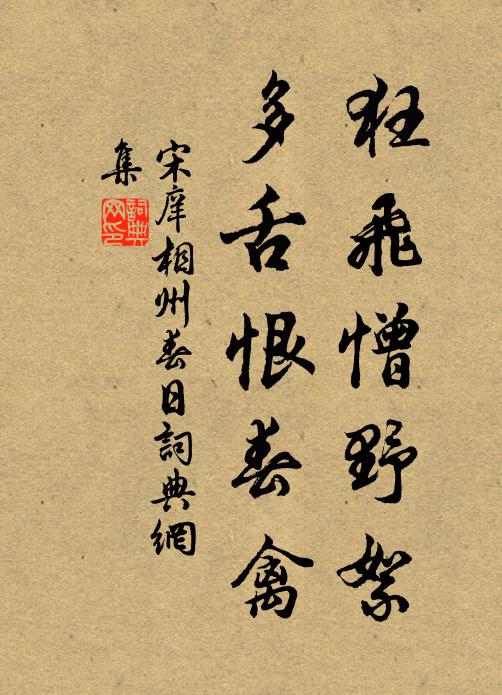 狂飛憎野絮
多舌恨春禽
宋庠相州春日詞典網
集
詞典網印